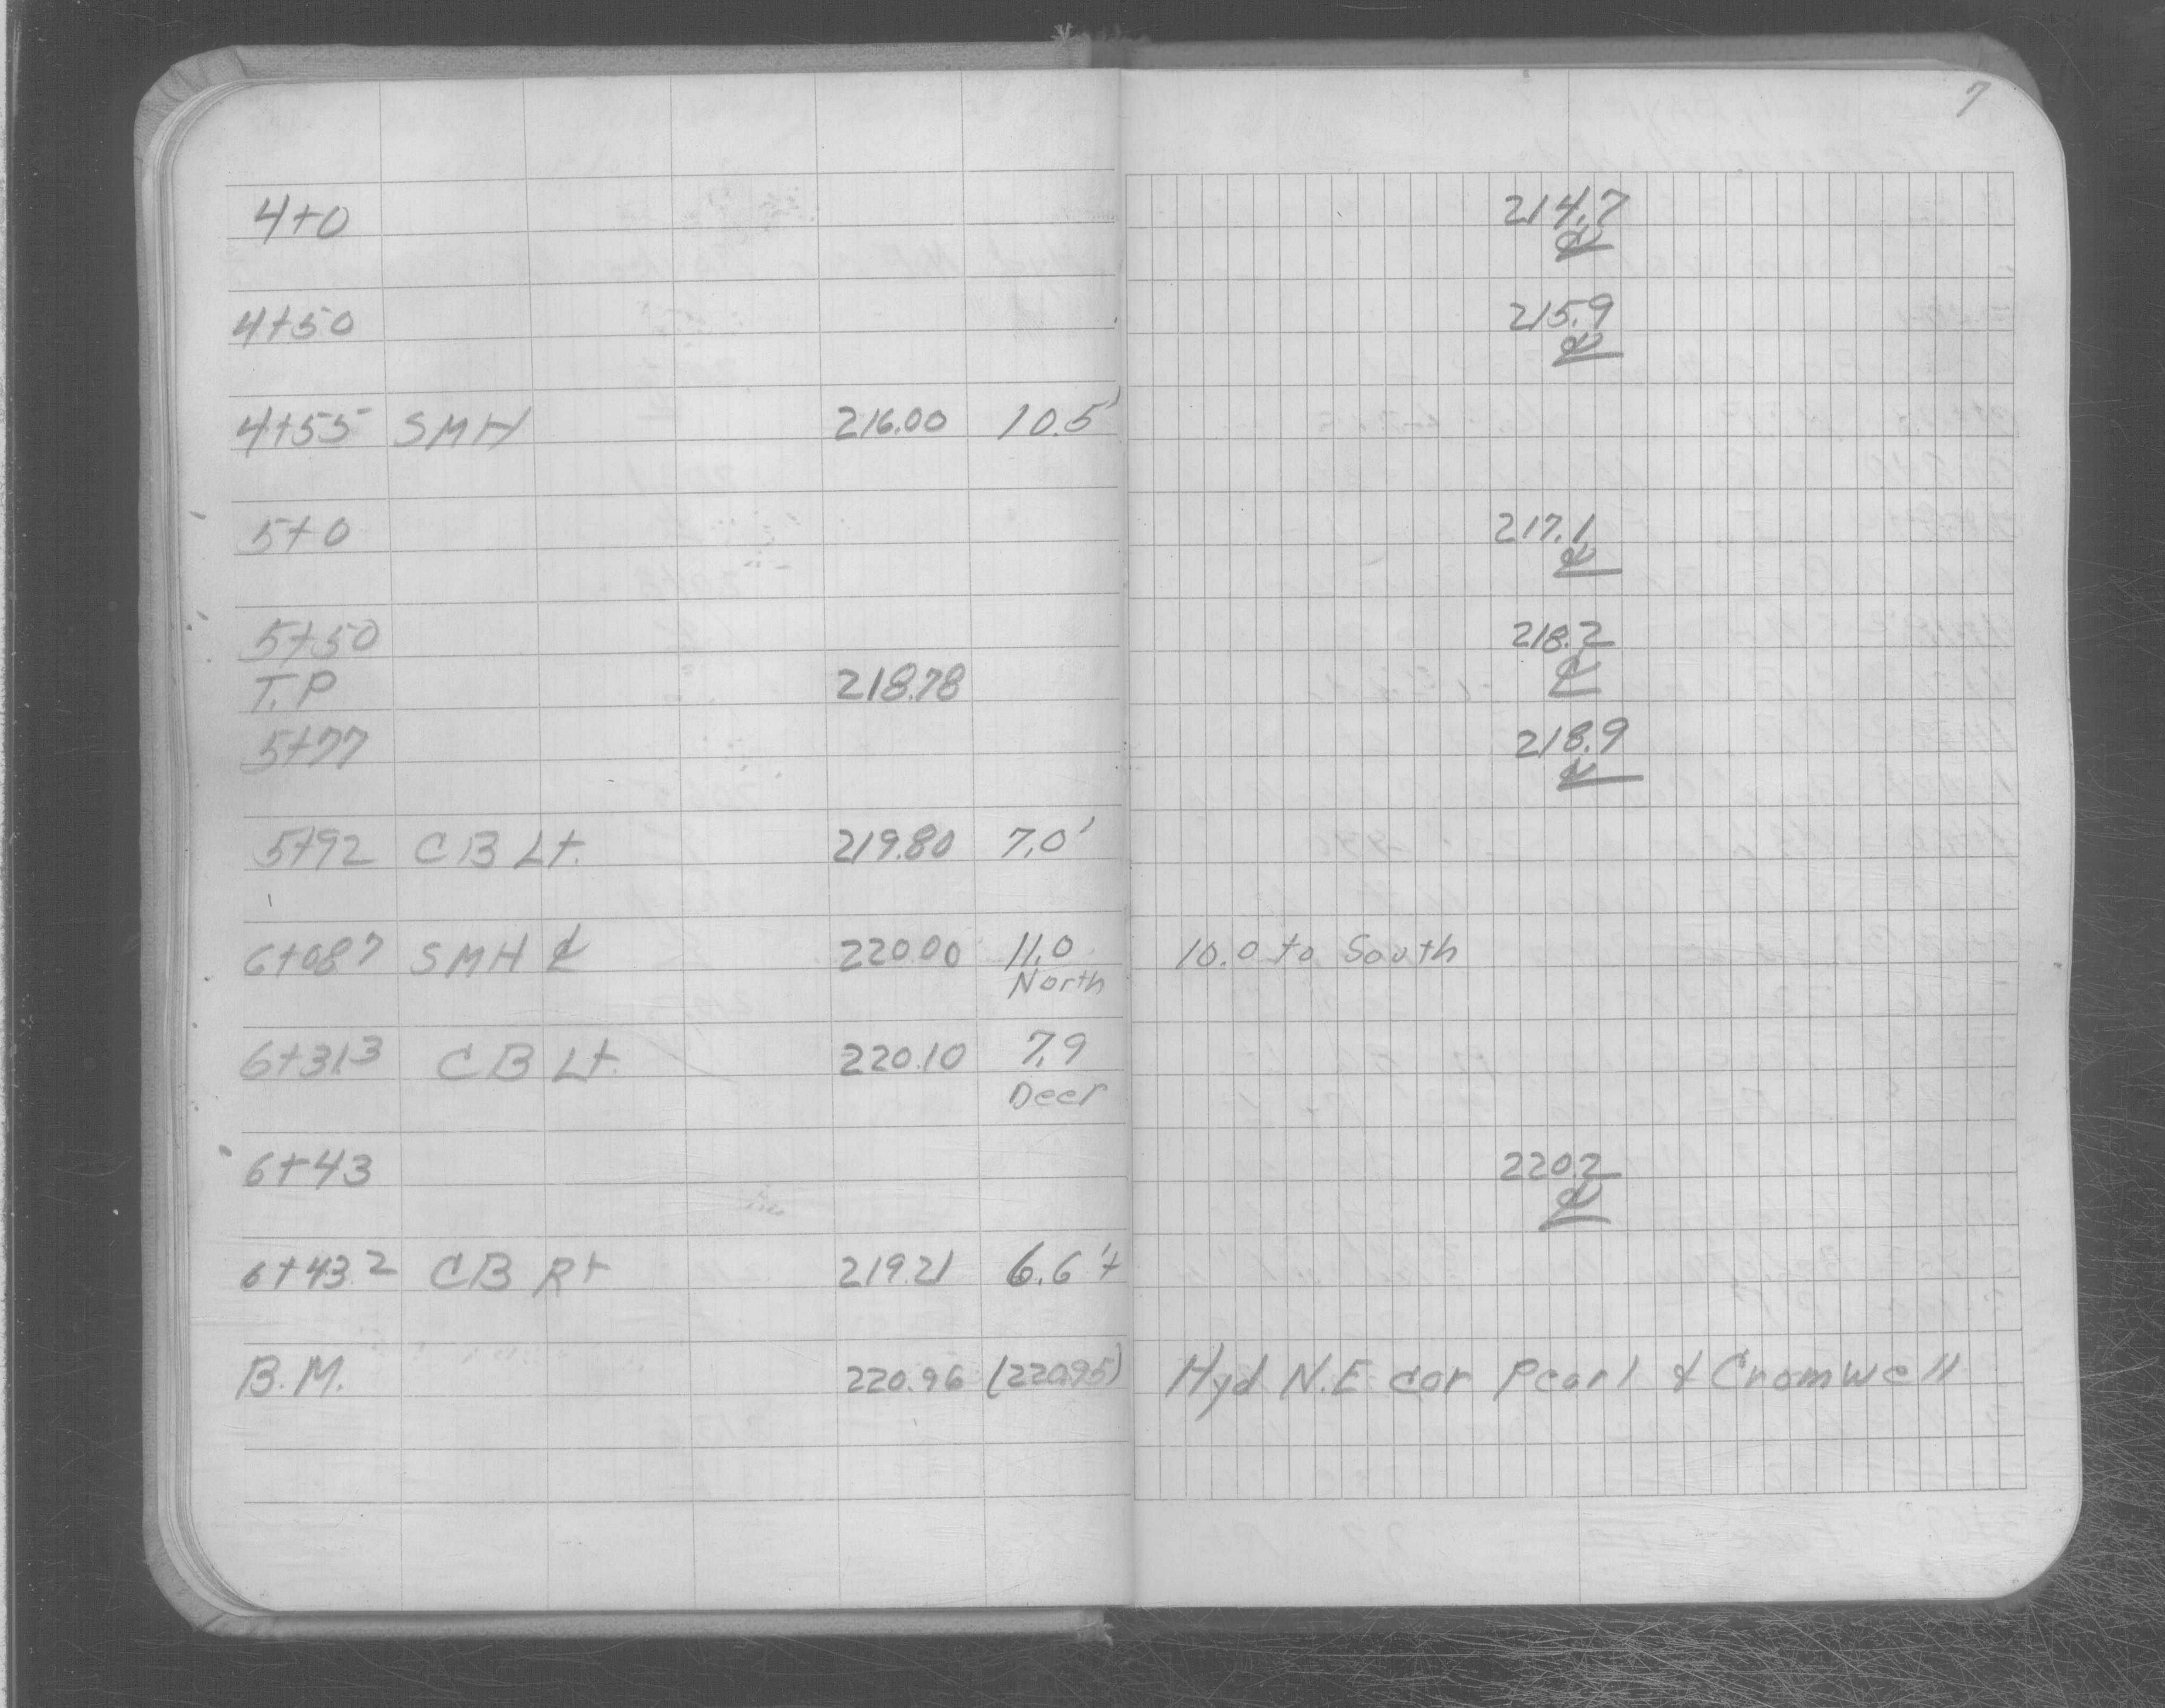 7
4+0 214.7
℄
4+50 215.9
℄
4+55 SMH 216.00 10.5'
5+0 217.1
℄
5+50 218.2
℄
T.P 218.78
5+77 218.9
℄
5+92 CB Lt. 219.80 7.0'
6+087 SMH ℄ 220.00 11.0 10.0 to South
North
6+313 CB Lt. 220.10 7.9
Deer
6+43 220.2
℄
6+432 CB Rt 219.21 6.6'±
B.M. 220.96 (220.95) Hyd N.E cor Pearl & Cromwell